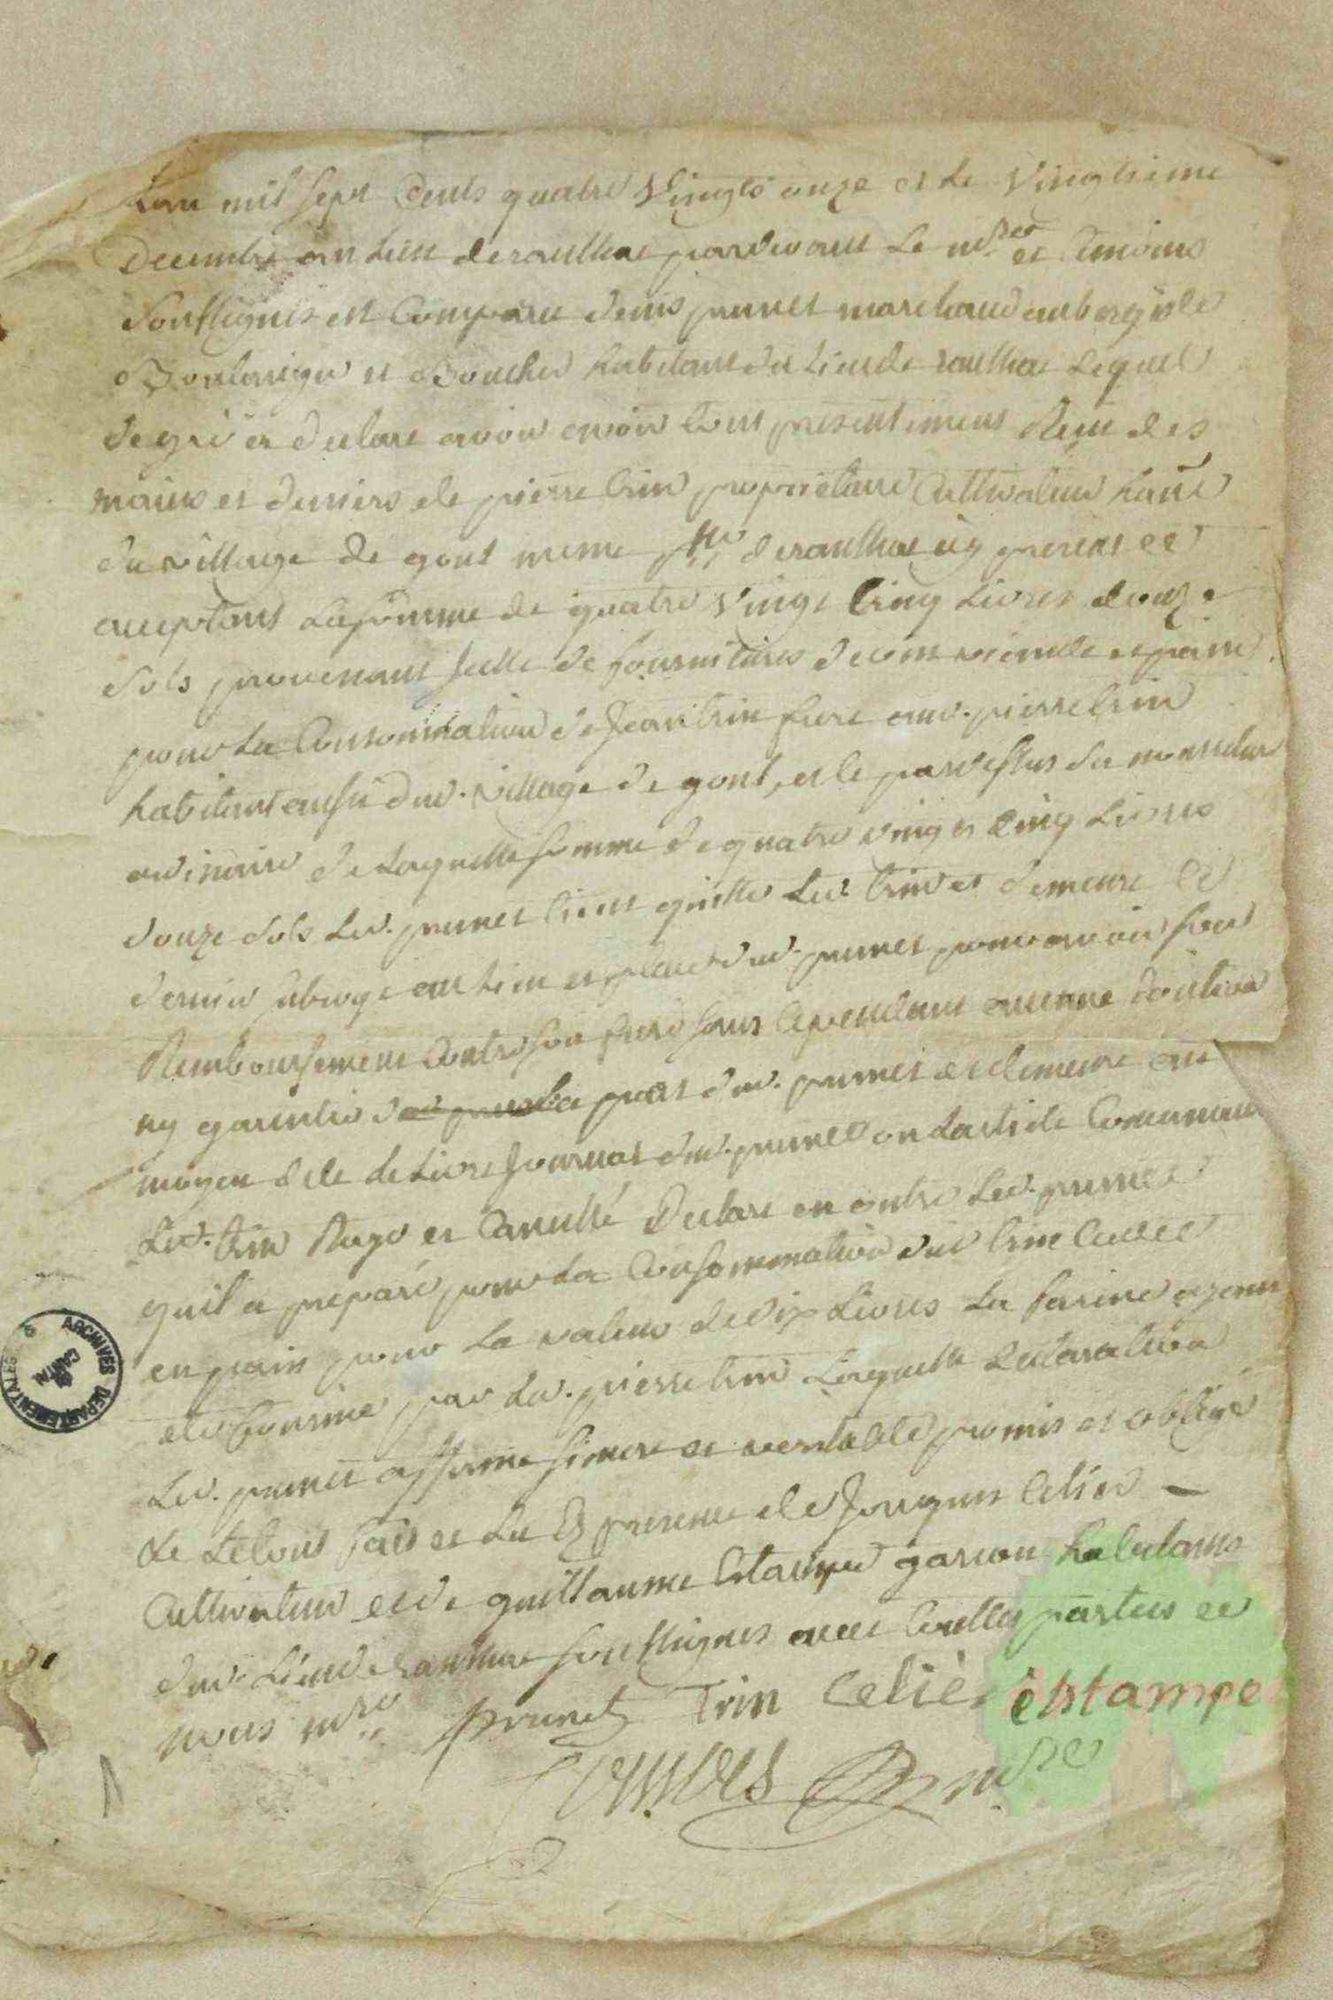 Lan mil sept cents quatre vingts onze et le vingtieme
Decembre au lieu de raulhac pardevant le n.re et temoins
soussignés est comparu denis prunet marchand aubergiste
Boulanger et Boucher habitant du lieu de raulhac lequel
de gré a declaré avoir avoir tout presentement Reçu des
mains et deniers de pierre trin propriétaire Cultivateur
du village de gout meme p.sse de raulhac icy present et
acceptant la somme de quatre vingt cinq livres douze
sols provenant icelle de fournitures de vin viande et pain
pour la Consommation de Jean trin frere aud. pierre trin
habitant aussi dud. village de gout, et le pardessus du
ordinaire de laquelle somme de quatre vingt cinq livres
douze sols led. prunet tient quitte led. trin et demeure ce
dernier subrogé au lieu et place dud. prunet pour avoir son
Remboursement Contre son frere sans cependant aucune
ny garentie de la part dud. prunet et demeure au
moyen de ce le Livre Journal dud. prunet en l'article Concernant
led. trin Rayé et Cancellé Declare en outre led. prunet
qu'il a preparé pour la Consommation dud trin cadet
en pain pour la valeur de dix livres la farine ayant
eté fournie par led. pierre trin Laquelle declaration
led. prunet affirme sincere et veritable promis et obligé
le tout fait et lu En presence de Jacques Celier -
Cultivateur et de guillaume Estampe garcon habitans
dud. Lieu de raulhac soussignés avec lesdites parties et
nous n.re prunet Trin Celiè èstampe
n.re
ARCHIVES DEPARTEMENTALES
DU CANTAL